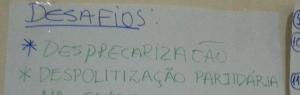 DESAFIOS:
* DESPRECARIZAÇÃO
* DESPOLITIZAÇÃO PARTIDÁRIA